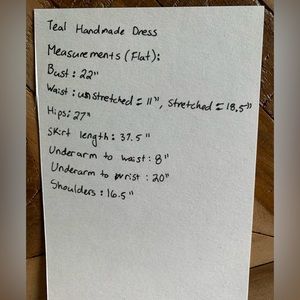 Teal Handmade Dress
Measurements (Flat):
Bust: 22"
Waist: unstretched = 11", stretched = 18.5"
Hips: 27"
Skirt length: 37.5"
Underarm to waist: 8"
Underarm to wrist: 20"
Shoulders: 16.5"